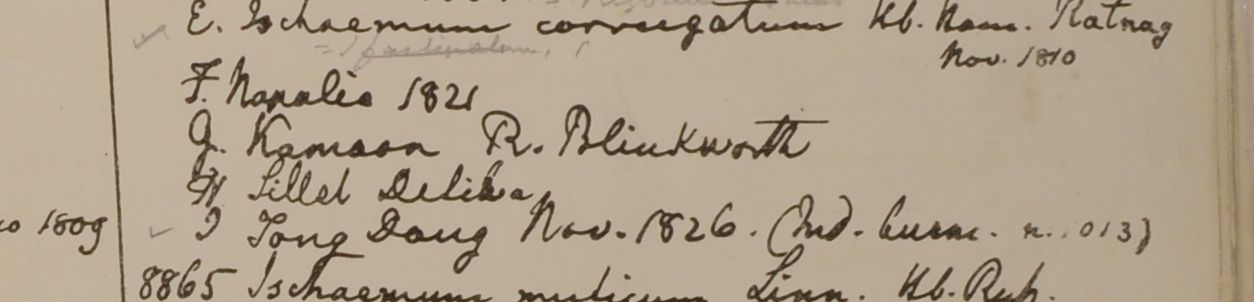 E. Ischaemum corrugatum Hb. Ham. Ratnag
Nov. 1810
F. Napalia 1821
G. Kamaon R. Blinkworth
H Sillet Delika
1809
I Tong Dong Nov. 1826. (Ind. burm. n. 1013)
8865 Ischaemum muticum Linn. Hb. Ruh.